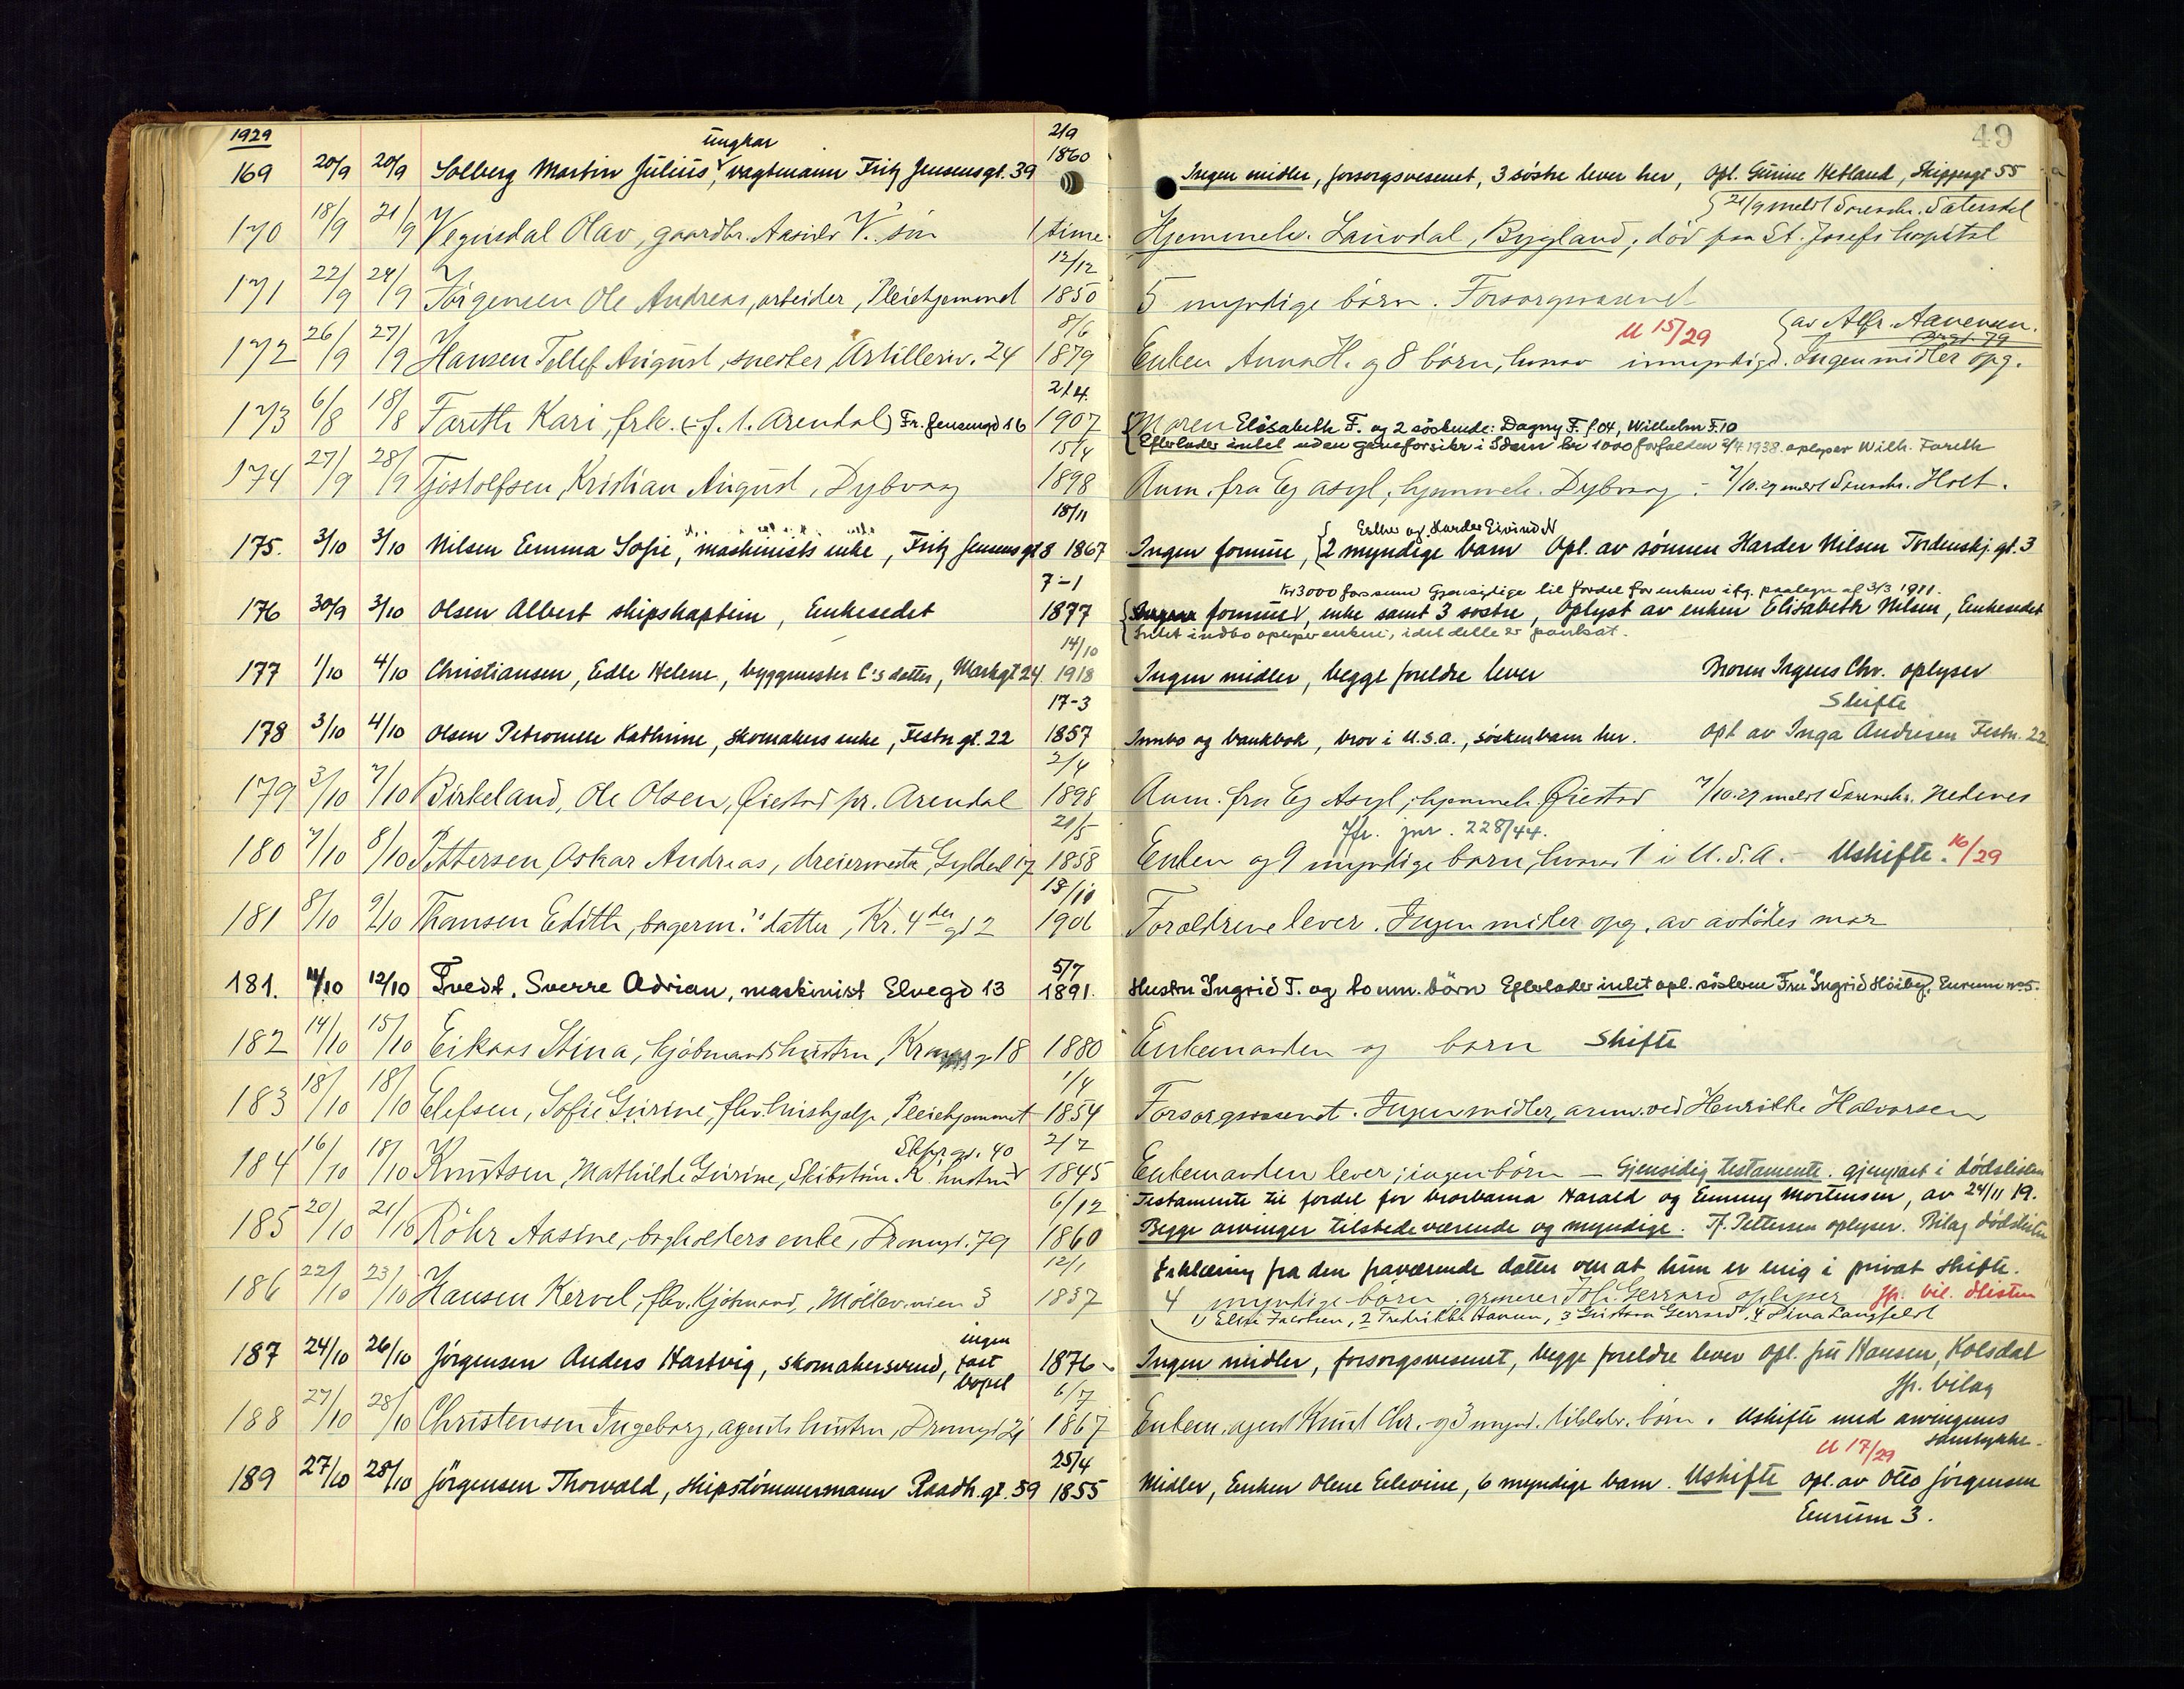 1929
49
169 20/9 20/9 Solberg Martin Julius, ungkar vagtmann Fritz Jensensgt. 39 21/9 1860 Ingen midler, forsorgsvesenet, 3 søstre lever her, Opl. Gurine Hetland, Skippergt 55
21/9 meldt Sorenskr. Sætersdal
170 18/9 21/9 Vegusdal Olav, gaardbr. Aasulv V.'s søn 1 time. Hjemmeh. Lauvdal, Bygland, død paa St. Josefs hospital
171 22/9 24/9 Jørgensen Ole Andreas, arbeider, Pleiehjemmet 12/12 1850 5 myndige børn. Forsorgsvesenet
172 26/9 27/9 Hansen Tellef August, snedker, Artilleriv. 24 8/6 1879 Enken Anna H. og 8 børn, hvorav umyndige. Ingen midler opg.
U 15/29 av Alfr. Aanensen.
173 6/8 18/8 Fareth Kari, frk. (f. i Arendal) Fr. Jensensgd 16 21/4. 1907 Moren Elisabeth F. og 2 söskende: Dagny F. f. 04, Wilhelm F. 10
Efterlader intet uden gjensforsikr i Idun kr 1000 forfalden 2/4 1938. oplyser Wilh. Fareth
174 27/9 28/9 Tjøstolfsen, Kristian August, Dybvaag 15/4 1898 Anm. fra Eg asyl, hjemmeh. Dybvaag - 7/10.29 meldt Sorenskr. Holt.
175. 3/10 3/10 Nilsen Emma Sofie, maskinists enke, Fritz Jensensgt 8 18/11 1867 Ingen formue, 2 myndige barn Opl. av sønnen Harder Nilsen Tordenskj. gt. 3
Esther og Harder Eivind N
176 30/9 3/10 Olsen Albert skipskaptein, Enkesedet 7-1 1877 Ingen formue, enke samt 3 søstre, oplyst av enken Elisabeth Nilsen, Enkesedet
kr 3000 forsum Gjensidige til fordel for enken ifg. paategn af 3/3 1911.
Intet indbo oplyser enken, idet dette er pantsat.
177 1/10 4/10 Christiansen, Edle Helene, byggmester C's datter, Markgt 24 14/10 1918 Ingen midler, begge foreldre lever Broren Ingens Chr. oplyser
178 3/10 4/10 Olsen Petronelle Kathrine, skomakers enke, Festn gt. 22 17-3 1857 Innbo og bankbok, bror i U.S.A., søskenbarn her. Skifte opl av Inga Andresen Festn. 22
179 3/10 7/10 Birkeland, Ole Olsen, Øiestad pr. Arendal 2/4 1898 Anm. fra Eg Asyl, hjemmeh. Øiestad 7/10.29 meldt Sorenskr. Nedenes
180 7/10 8/10 Pettersen, Oskar Andreas, dreiermester, Gyldenl 17 21/5 1858 Enken og 9 myndige børn, hvorav 1 i U.S.A. - Uskifte. 16/29
Jfr. jnr. 228/44.
181 8/10 9/10 Thomsen Edith, bagerm.'s datter, Kr. 4des gd 2 18/10 1906 Forældrene lever. Ingen midler opg. av avdødes mor
181. 11/10 12/10 Tvedt, Sverre Adrian, maskinist Elvegd 13 5/7 1891. Hustru Ingrid T. og to um. børn Efterlader intet opl. søsteren Fru Ingrid Høiby, Eurum no 5.
182 14/10 15/10 Eikaas Stina, kjøbmandshustru, 18 1880 Enkemanden og børn Skifte
183 18/10 18/10 Elefsen, Sofie Gurine, fhv. hushjælp, Pleiehjemmet 1/4 1854 Forsorgsvesenet. Ingen midler, anm. ved Henrikke Halvorsen
184 16/10 18/10 Knutsen, Mathilde Gurine, Skibstøm. K. hustru Skprgt. 40 2/2 1845 Enkemanden lever; ingen børn - Gjensidig testamente. gjenpart i dødslisten
Testamente til fordel for brorbarna Harald og Emmy Mortensen, av 24/11 19.
185 20/10 21/10 Röhr Aasine, bogholders enke, Dronngt. 79 6/12 1860 Begge arvinger tilstedeværende og myndige. Tf. Pettersen oplyser. Bilag dødslisten
Erklæring fra den fraværende datter om at hun er enig i privat skifte.
186 22/10 23/10 Hansen Kervel, fhv. Kjøbmand, Møllev.veien 3 12/1 1837 4 myndige børn, Joh. Gerrard oplyser Jfr. bil. dlisten
1) Elise Jacobsen, 2 Fredrikke Hansen, 3 Gustava Gerrard, 4 Dina Langfeldt
187 24/10 26/10 Jørgensen Anders Hartvig, skomakersvend, ingen fast bopel 1876 Ingen midler, forsorgsvesenet, begge foreldre lever opl. fru Hansen, Kolsdal
188 27/10 28/10 Christensen Ingeborg, agents hustru, Dronngt 21 6/7 1867 Enkem. agent Knut Chr. og 3 mynd. tilstedev. børn. Uskifte med arvingens samtykke.
Jfr. bilag
189 27/10 28/10 Jørgensen Thorvald, skipstømmermann Raadh. gt. 59 25/4 1855 Midler, Enken Olene Eelevine, 6 myndige barn. Uskifte opl. av Otto Jørgensen
U 17/29
Eurum 3.